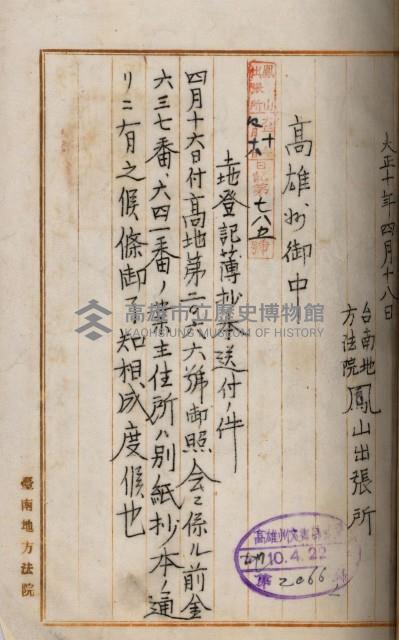 大正十年四月十八日
台南地方法院鳳山出張所
高雄州御中
鳳山
出張所
日記第七八五號
土地登記簿抄本送付ノ件
四月十六日付高地第二〇六六號御照会ニ係ル前金
六三七番、六四一番ノ業主住所ハ別紙抄本ノ通
リニ有之候條御了知相成度候也
臺南地方法院
高雄市立歷史博物館
KAOHSIUNG MUSEUM OF HISTORY
高雄州
10.4.22
第2066號